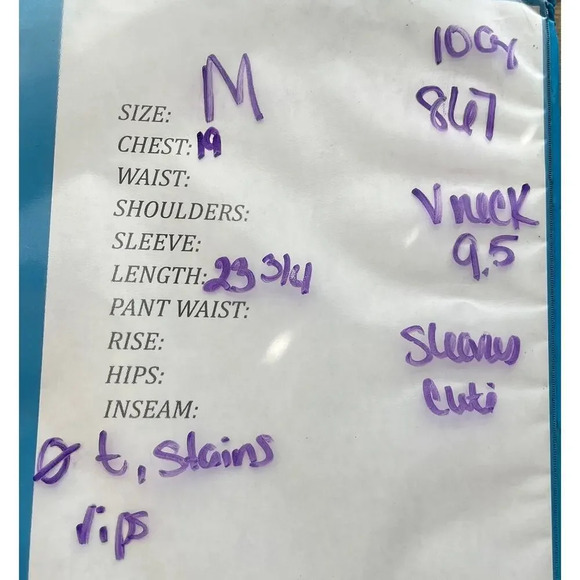 SIZE: M
CHEST: 19
WAIST:
SHOULDERS:
SLEEVE:
LENGTH: 23 3/4
PANT WAIST:
RISE:
HIPS:
INSEAM:
Ø t, Stains
rips
867
V neck
9.5